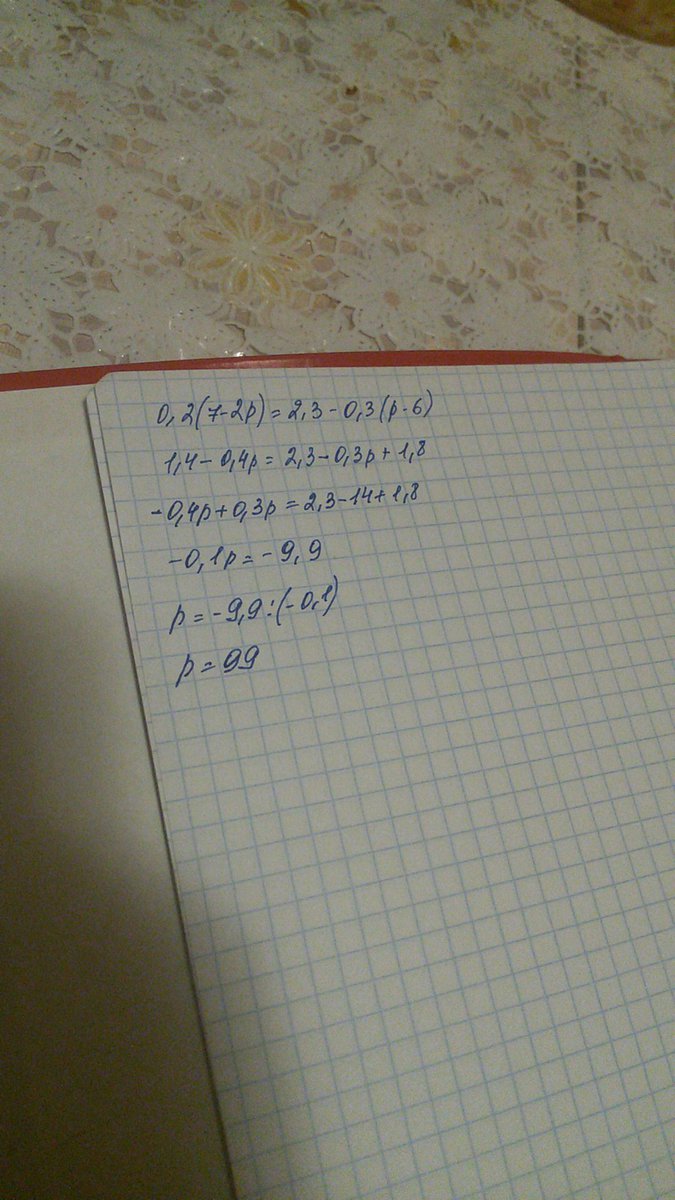 0,2(7-2p)=2,3-0,3(p-6)
1,4-0,4p=2,3-0,3p+1,8
-0,4p+0,3p=2,3-14+1,8
-0,1p=-9,9
p=-9,9:(-0,1)
p=99